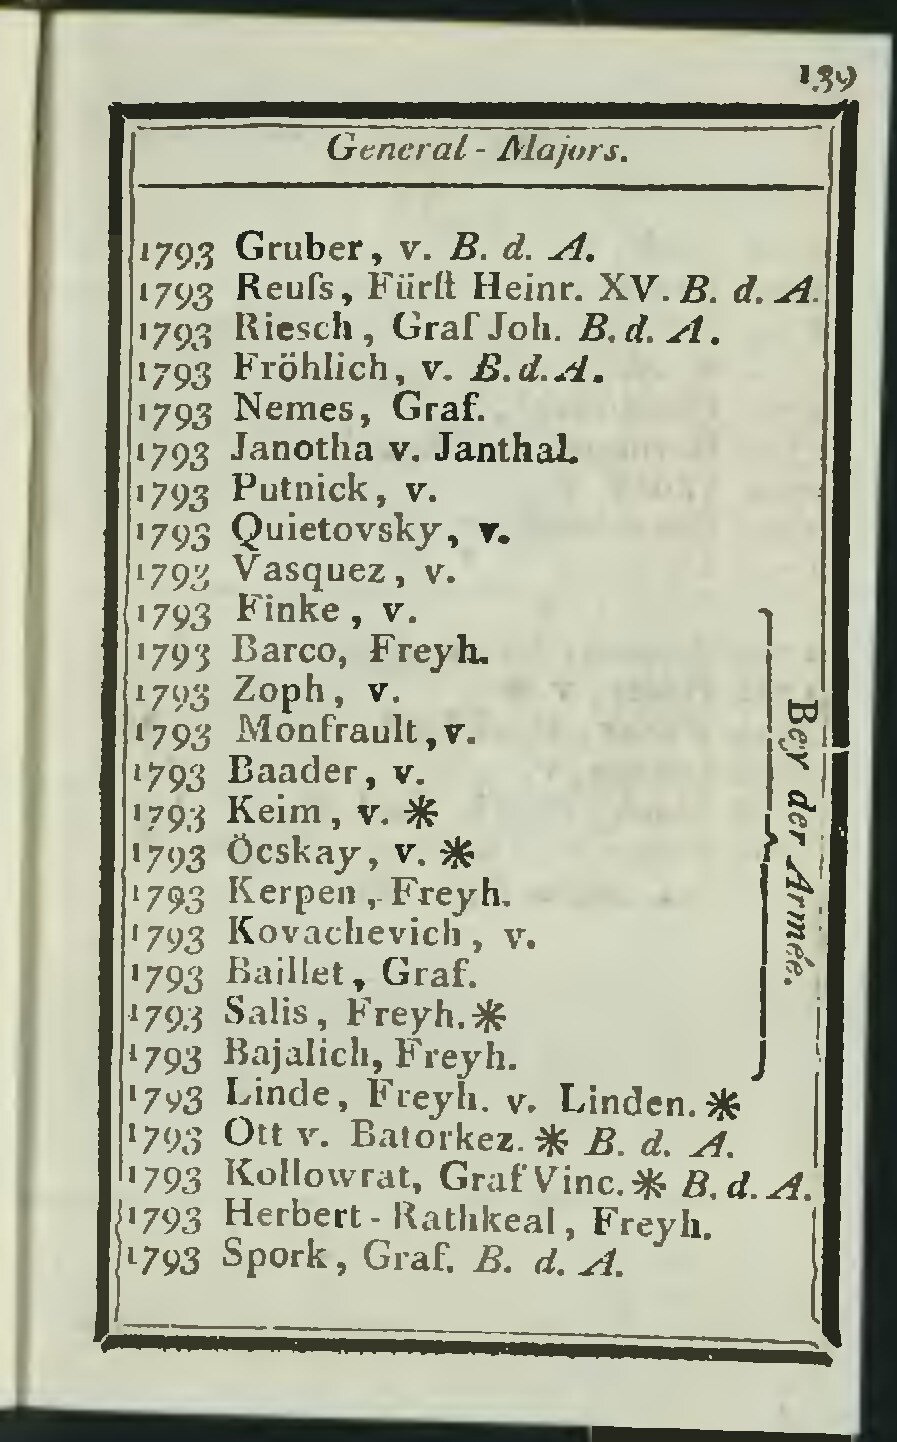 139
General-Majors.
1793 Gruber, v. B. d. A.
1793 Reuſs, Fürſt Heinr. XV. B. d. A.
1793 Riesch, Graf Joh. B. d. A.
1793 Fröhlich, v. B. d. A.
1793 Nemes, Graf.
1793 Janotha v. Janthal.
1793 Putnick, v.
1793 Quietovsky, v.
1793 Vasquez, v.
1793 Finke, v.
1793 Barco, Freyh.
1793 Zoph, v.
1793 Monfrault, v.
1793 Baader, v.
1793 Keim, v. *
1793 Öcskay, v. *
1793 Kerpen, Freyh.
1793 Kovachevich, v.
1793 Baillet, Graf.
1793 Salis, Freyh. *
1793 Bajalich, Freyh.
Bey der Armée.
1793 Linde, Freyh. v. Linden. *
1793 Ott v. Batorkez. * B. d. A.
1793 Kollowrat, Graf Vinc. * B. d. A.
1793 Herbert-Rathkeal, Freyh.
1793 Spork, Graf. B. d. A.